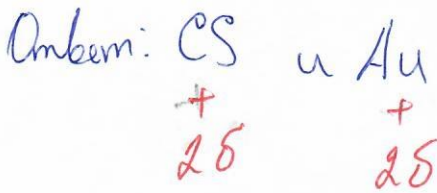 Ответ: CS и Au
+ +
2б 2б